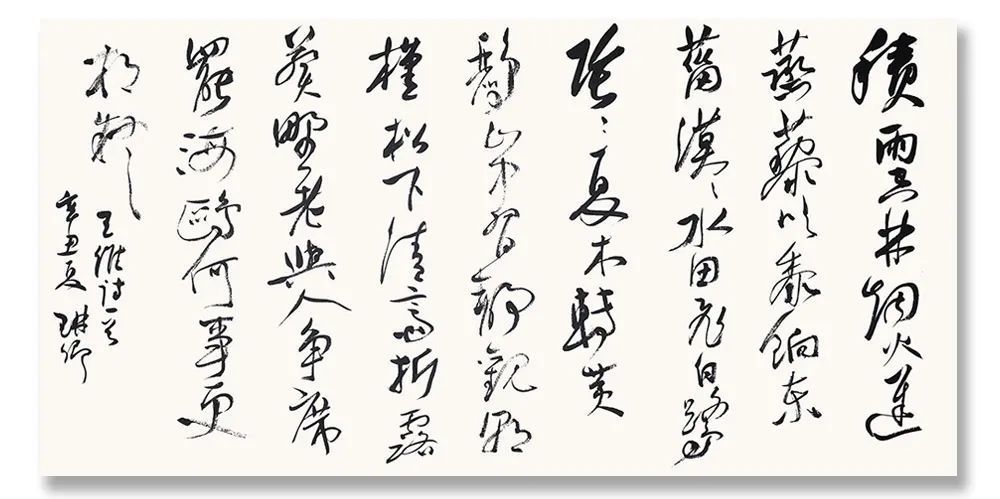 積雨空林烟火遲
蒸藜炊黍餉東
菑漠〻水田飛白鷺
陰〻夏木轉黄
鸝山中習靜觀朝
槿松下清齋折露
葵野老與人爭席
罷海鷗何事更
相疑
王維詩一首
辛丑夏